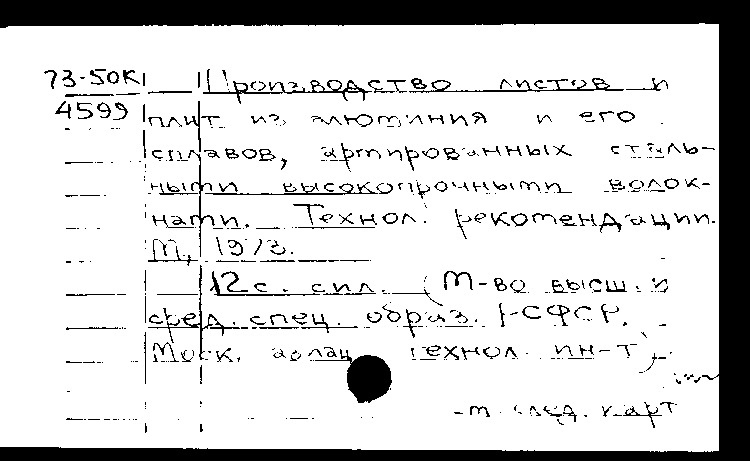 73-50К Производство листов и
4599 плит из алюминия и его
сплавов, армированных сталь-
ными высокопрочными волок-
нами. Технол. рекомендации.
М., 1973.
12 с. с ил. (М-во высш. и
сред. спец. образ. РСФСР.
Моск. авиац. технол. ин-т).
след. карт